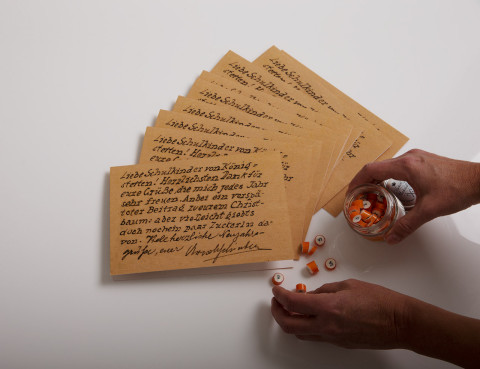 Liebe Schulkinder von
stetten!
Liebe Schulkinder von
Liebe Schulkinder
Liebe Schulkinder
Liebe Schulkinder von
stetten! Herz
Liebe Schulkinder von König-
stetten! Herzlichsten Dank für
eure Grüße, die mich jedes Jahr
sehr freuen. Anbei ein verspä-
teter Beitrag zu eurem Christ-
baum: aber vielleicht gibts
doch noch ein paar Zuckerln da-
von. Recht herzliche Neujahrs-
grüße, euer